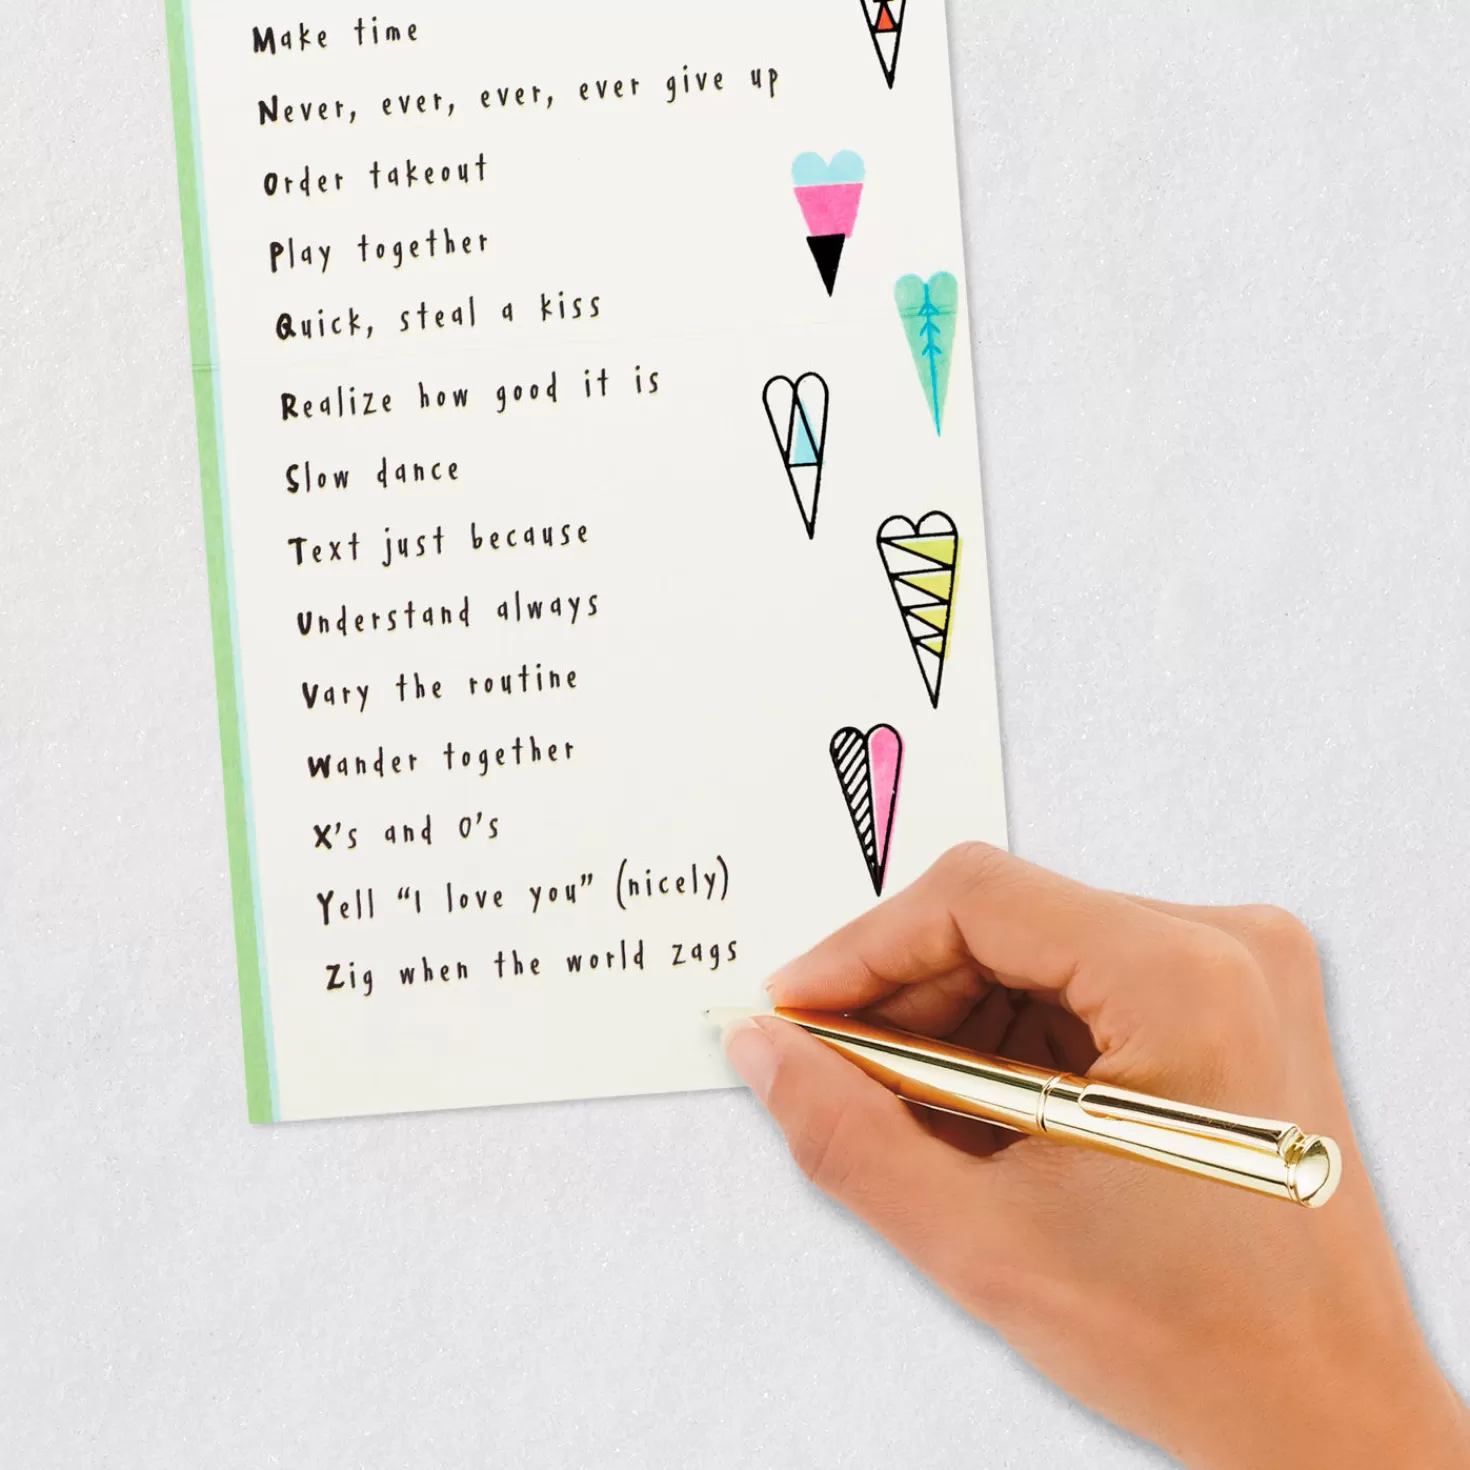 Make time
Never, ever, ever, ever give up
Order takeout
Play together
Quick, steal a kiss
Realize how good it is
Slow dance
Text just because
Understand always
Vary the routine
Wander together
X's and O's
Yell “I love you” (nicely)
Zig when the world zags